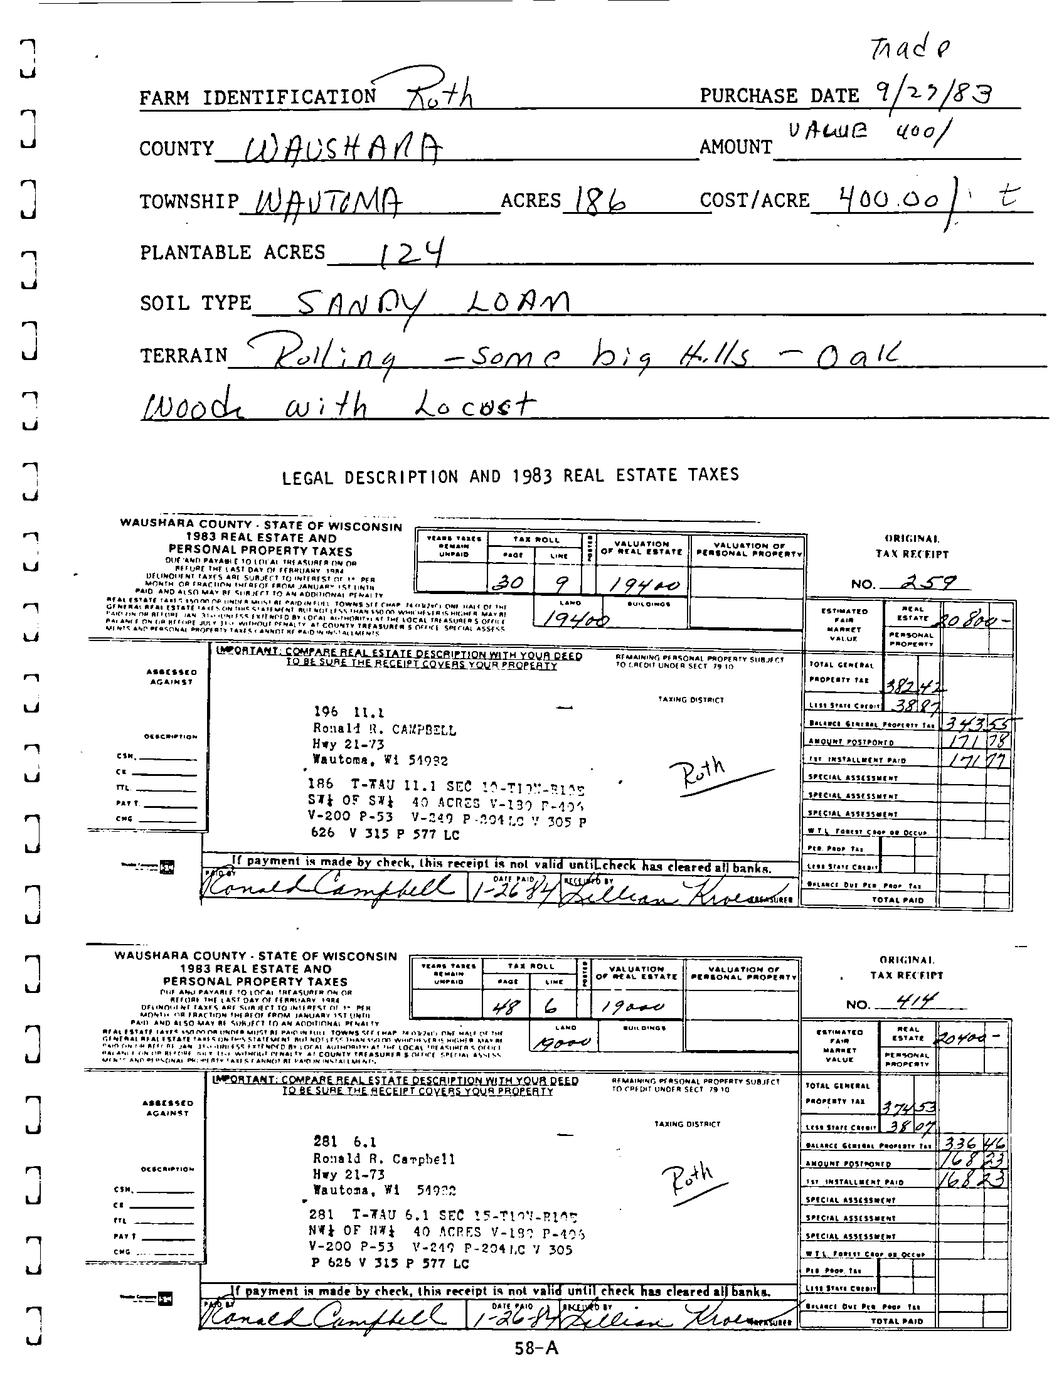 Trade
FARM IDENTIFICATION Roth PURCHASE DATE 9/27/83
COUNTY WAUSHARA AMOUNT VALUE 400/
TOWNSHIP WAUTOMA ACRES 186 COST/ACRE 400.00/ t
PLANTABLE ACRES 124
SOIL TYPE SANDY LOAM
TERRAIN Rolling - some big Hills - Oak
Woods with Locust
LEGAL DESCRIPTION AND 1983 REAL ESTATE TAXES
WAUSHARA COUNTY - STATE OF WISCONSIN
1983 REAL ESTATE AND
PERSONAL PROPERTY TAXES
DUE AND PAYABLE TO LOCAL TREASURER ON OR
BEFORE THE LAST DAY OF FEBRUARY 1984
DELINQUENT TAXES ARE SUBJECT TO INTEREST OF 1% PER
MONTH OR FRACTION THEREOF FROM JANUARY 1ST UNTIL
PAID AND ALSO MAY BE SUBJECT TO AN ADDITIONAL PENALTY
YEARS TAXES REMAIN UNPAID
TAX ROLL
PAGE LINE
30 9
POSTED
VALUATION OF REAL ESTATE
19400
VALUATION OF PERSONAL PROPERTY
LAND BUILDINGS
19400
ORIGINAL
TAX RECEIPT
NO. 259
IMPORTANT: COMPARE REAL ESTATE DESCRIPTION WITH YOUR DEED
TO BE SURE THE RECEIPT COVERS YOUR PROPERTY
REMAINING PERSONAL PROPERTY SUBJECT
TO CREDIT UNDER SECT 79.10
ASSESSED AGAINST
TAXING DISTRICT
196 11.1
Ronald R. CAMPBELL
Hwy 21-73
Wautoma, Wi 54982
Roth
DESCRIPTION
CSH.
CK
TTL
PAY'T
CHG
186 T-WAU 11.1 SEC 10-T19N-R10E
SW¼ OF SW¼ 40 ACRES V-189 P-496
V-200 P-53 V-249 P-204 LC V 305 P
626 V 315 P 577 LC
ESTIMATED FAIR MARKET VALUE
REAL ESTATE 20800-
PERSONAL PROPERTY
TOTAL GENERAL PROPERTY TAX 382 42
LESS STATE CREDIT 38 87
BALANCE GENERAL PROPERTY TAX 343 55
AMOUNT POSTPONED 171 78
1ST INSTALLMENT PAID 171 77
SPECIAL ASSESSMENT
SPECIAL ASSESSMENT
SPECIAL ASSESSMENT
W.T.L. FOREST CROP OR OCCUP.
PER. PROP TAX
LESS STATE CREDIT
BALANCE DUE PER. PROP TAX
TOTAL PAID
If payment is made by check, this receipt is not valid until check has cleared all banks.
PAID BY Ronald Campbell DATE PAID 1-26-84 RECEIVED BY Lillian TREASURER
WAUSHARA COUNTY - STATE OF WISCONSIN
1983 REAL ESTATE AND
PERSONAL PROPERTY TAXES
DUE AND PAYABLE TO LOCAL TREASURER ON OR
BEFORE THE LAST DAY OF FEBRUARY 1984
DELINQUENT TAXES ARE SUBJECT TO INTEREST OF 1% PER
MONTH OR FRACTION THEREOF FROM JANUARY 1ST UNTIL
PAID AND ALSO MAY BE SUBJECT TO AN ADDITIONAL PENALTY
YEARS TAXES REMAIN UNPAID
TAX ROLL
PAGE LINE
48 6
POSTED
VALUATION OF REAL ESTATE
19000
VALUATION OF PERSONAL PROPERTY
LAND BUILDINGS
19000
ORIGINAL
TAX RECEIPT
NO. 414
IMPORTANT: COMPARE REAL ESTATE DESCRIPTION WITH YOUR DEED
TO BE SURE THE RECEIPT COVERS YOUR PROPERTY
REMAINING PERSONAL PROPERTY SUBJECT
TO CREDIT UNDER SECT 79.10
ASSESSED AGAINST
TAXING DISTRICT
281 6.1
Ronald R. Campbell
Hwy 21-73
Wautoma, Wi 54982
Roth
DESCRIPTION
CSH.
CK
TTL
PAY'T
CHG
281 T-WAU 6.1 SEC 15-T19N-R10E
NW¼ OF NW¼ 40 ACRES V-189 P-496
V-200 P-53 V-249 P-204 LC V 305
P 626 V 315 P 577 LC
ESTIMATED FAIR MARKET VALUE
REAL ESTATE 20400-
PERSONAL PROPERTY
TOTAL GENERAL PROPERTY TAX 374 53
LESS STATE CREDIT 38 07
BALANCE GENERAL PROPERTY TAX 336 46
AMOUNT POSTPONED 168 23
1ST INSTALLMENT PAID 168 23
SPECIAL ASSESSMENT
SPECIAL ASSESSMENT
SPECIAL ASSESSMENT
W.T.L. FOREST CROP OR OCCUP
PER. PROP TAX
LESS STATE CREDIT
BALANCE DUE PER. PROP TAX
TOTAL PAID
If payment is made by check, this receipt is not valid until check has cleared all banks.
PAID BY Ronald Campbell DATE PAID 1-26-84 RECEIVED BY Lillian TREASURER
58-A